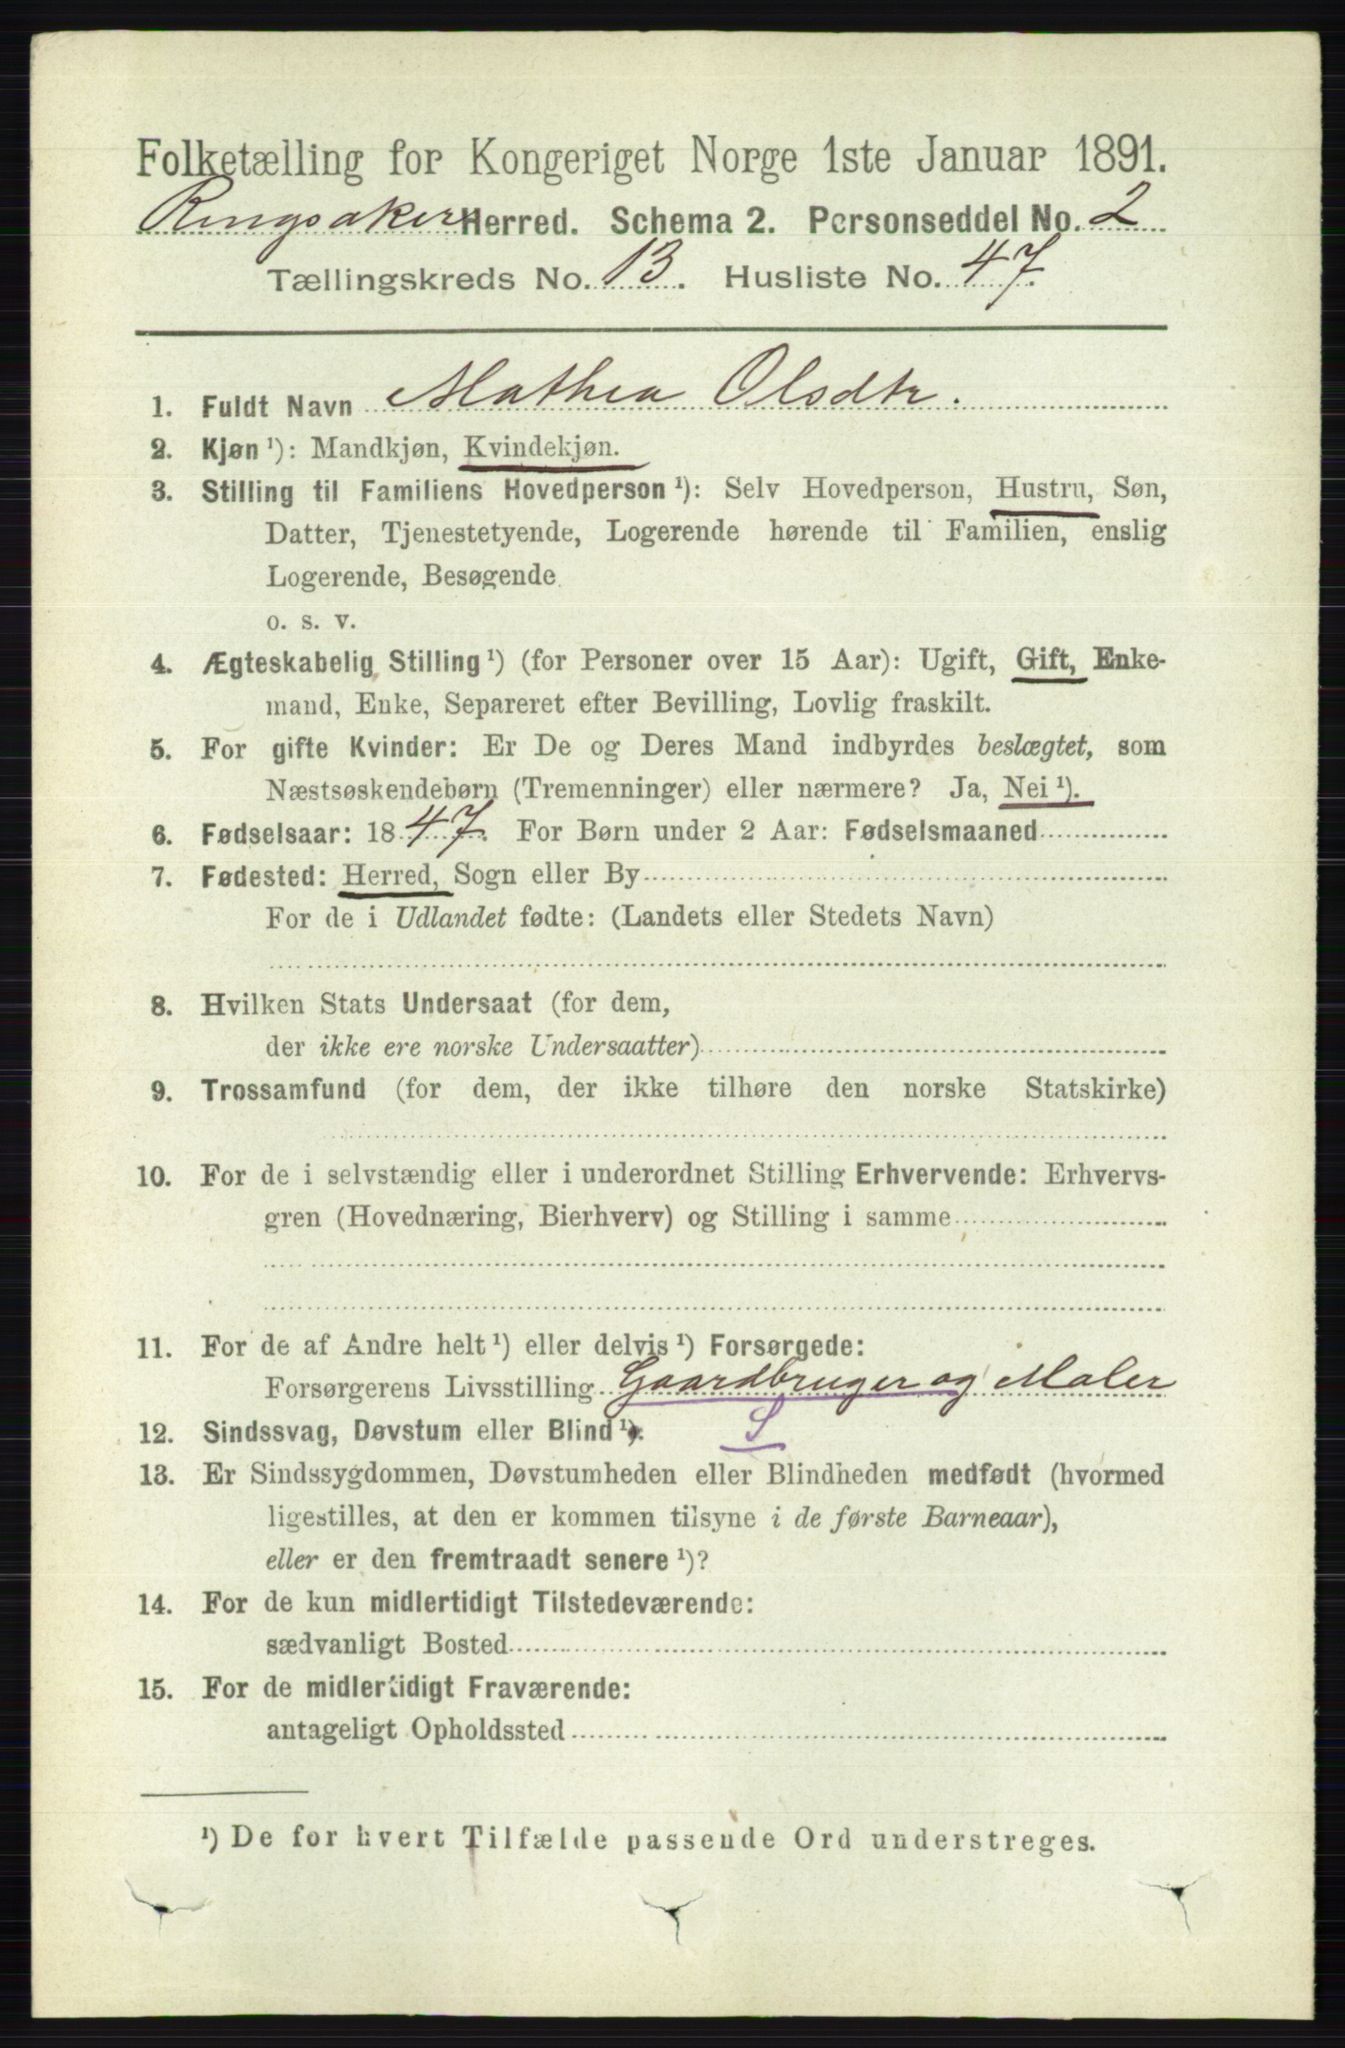 Folketælling for Kongeriget Norge 1ste Januar 1891.
Ringsaker Herred. Schema 2. Personseddel No. 2
Tællingskreds No. 13. Husliste No. 47.
1. Fuldt Navn Mathea Olsdtr.
2. Kjøn ¹): Mandkjøn, Kvindekjøn.
3. Stilling til Familiens Hovedperson ¹): Selv Hovedperson, Hustru, Søn,
Datter, Tjenestetyende, Logerende hørende til Familien, enslig
Logerende, Besøgende
o. s. v.
4. Ægteskabelig Stilling ¹) (for Personer over 15 Aar): Ugift, Gift, Enke-
mand, Enke, Separeret efter Bevilling, Lovlig fraskilt.
5. For gifte Kvinder: Er De og Deres Mand indbyrdes beslægtet, som
Næstsøskendebørn (Tremenninger) eller nærmere? Ja, Nei ¹).
6. Fødselsaar: 1847. For Børn under 2 Aar: Fødselsmaaned
7. Fødested: Herred, Sogn eller By
For de i Udlandet fødte: (Landets eller Stedets Navn)
8. Hvilken Stats Undersaat (for dem,
der ikke ere norske Undersaatter)
9. Trossamfund (for dem, der ikke tilhøre den norske Statskirke)
10. For de i selvstændig eller i underordnet Stilling Erhvervende: Erhvervs-
gren (Hovednæring, Bierhverv) og Stilling i samme
11. For de af Andre helt ¹) eller delvis ¹) Forsørgede:
Forsørgerens Livsstilling Gaardbruger og Maler
12. Sindssvag, Døvstum eller Blind ¹). S
13. Er Sindssygdommen, Døvstumheden eller Blindheden medfødt (hvormed
ligestilles, at den er kommen tilsyne i de første Barneaar),
eller er den fremtraadt senere ¹)?
14. For de kun midlertidigt Tilstedeværende:
sædvanligt Bosted
15. For de midlertidigt Fraværende:
antageligt Opholdssted
¹) De for hvert Tilfælde passende Ord understreges.